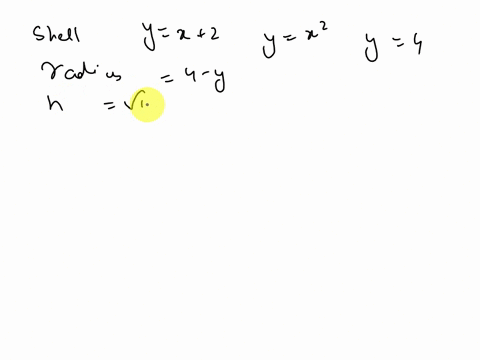 Shell y = x + 2 y = x² y = 4
radius = 4 - y
h = √